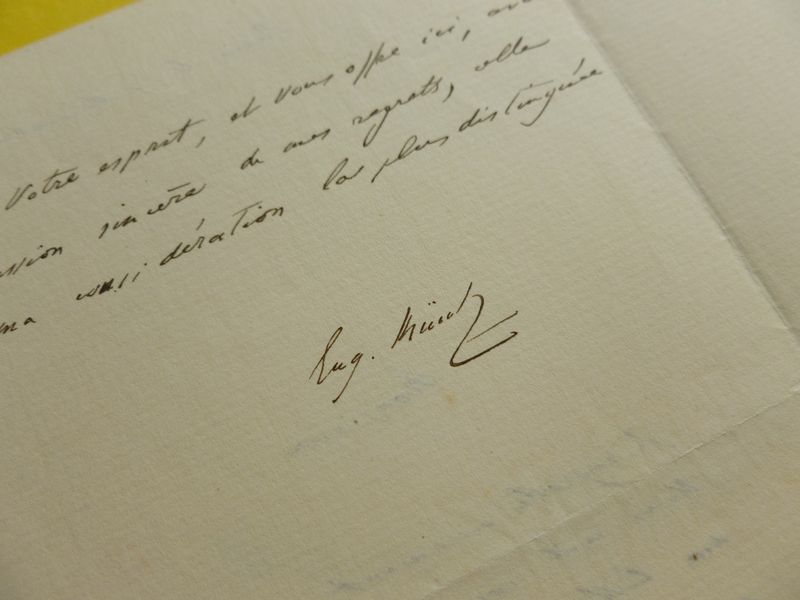 Votre esprit, et vous offre ici, av
ssion sincère de mes regrets, celle
ma considération la plus distinguée
Eug. Müntz